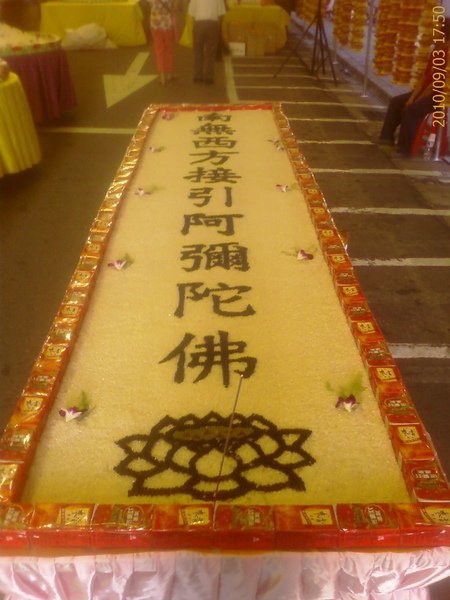 南無西方接引阿彌陀佛
2010/09/03 17:50